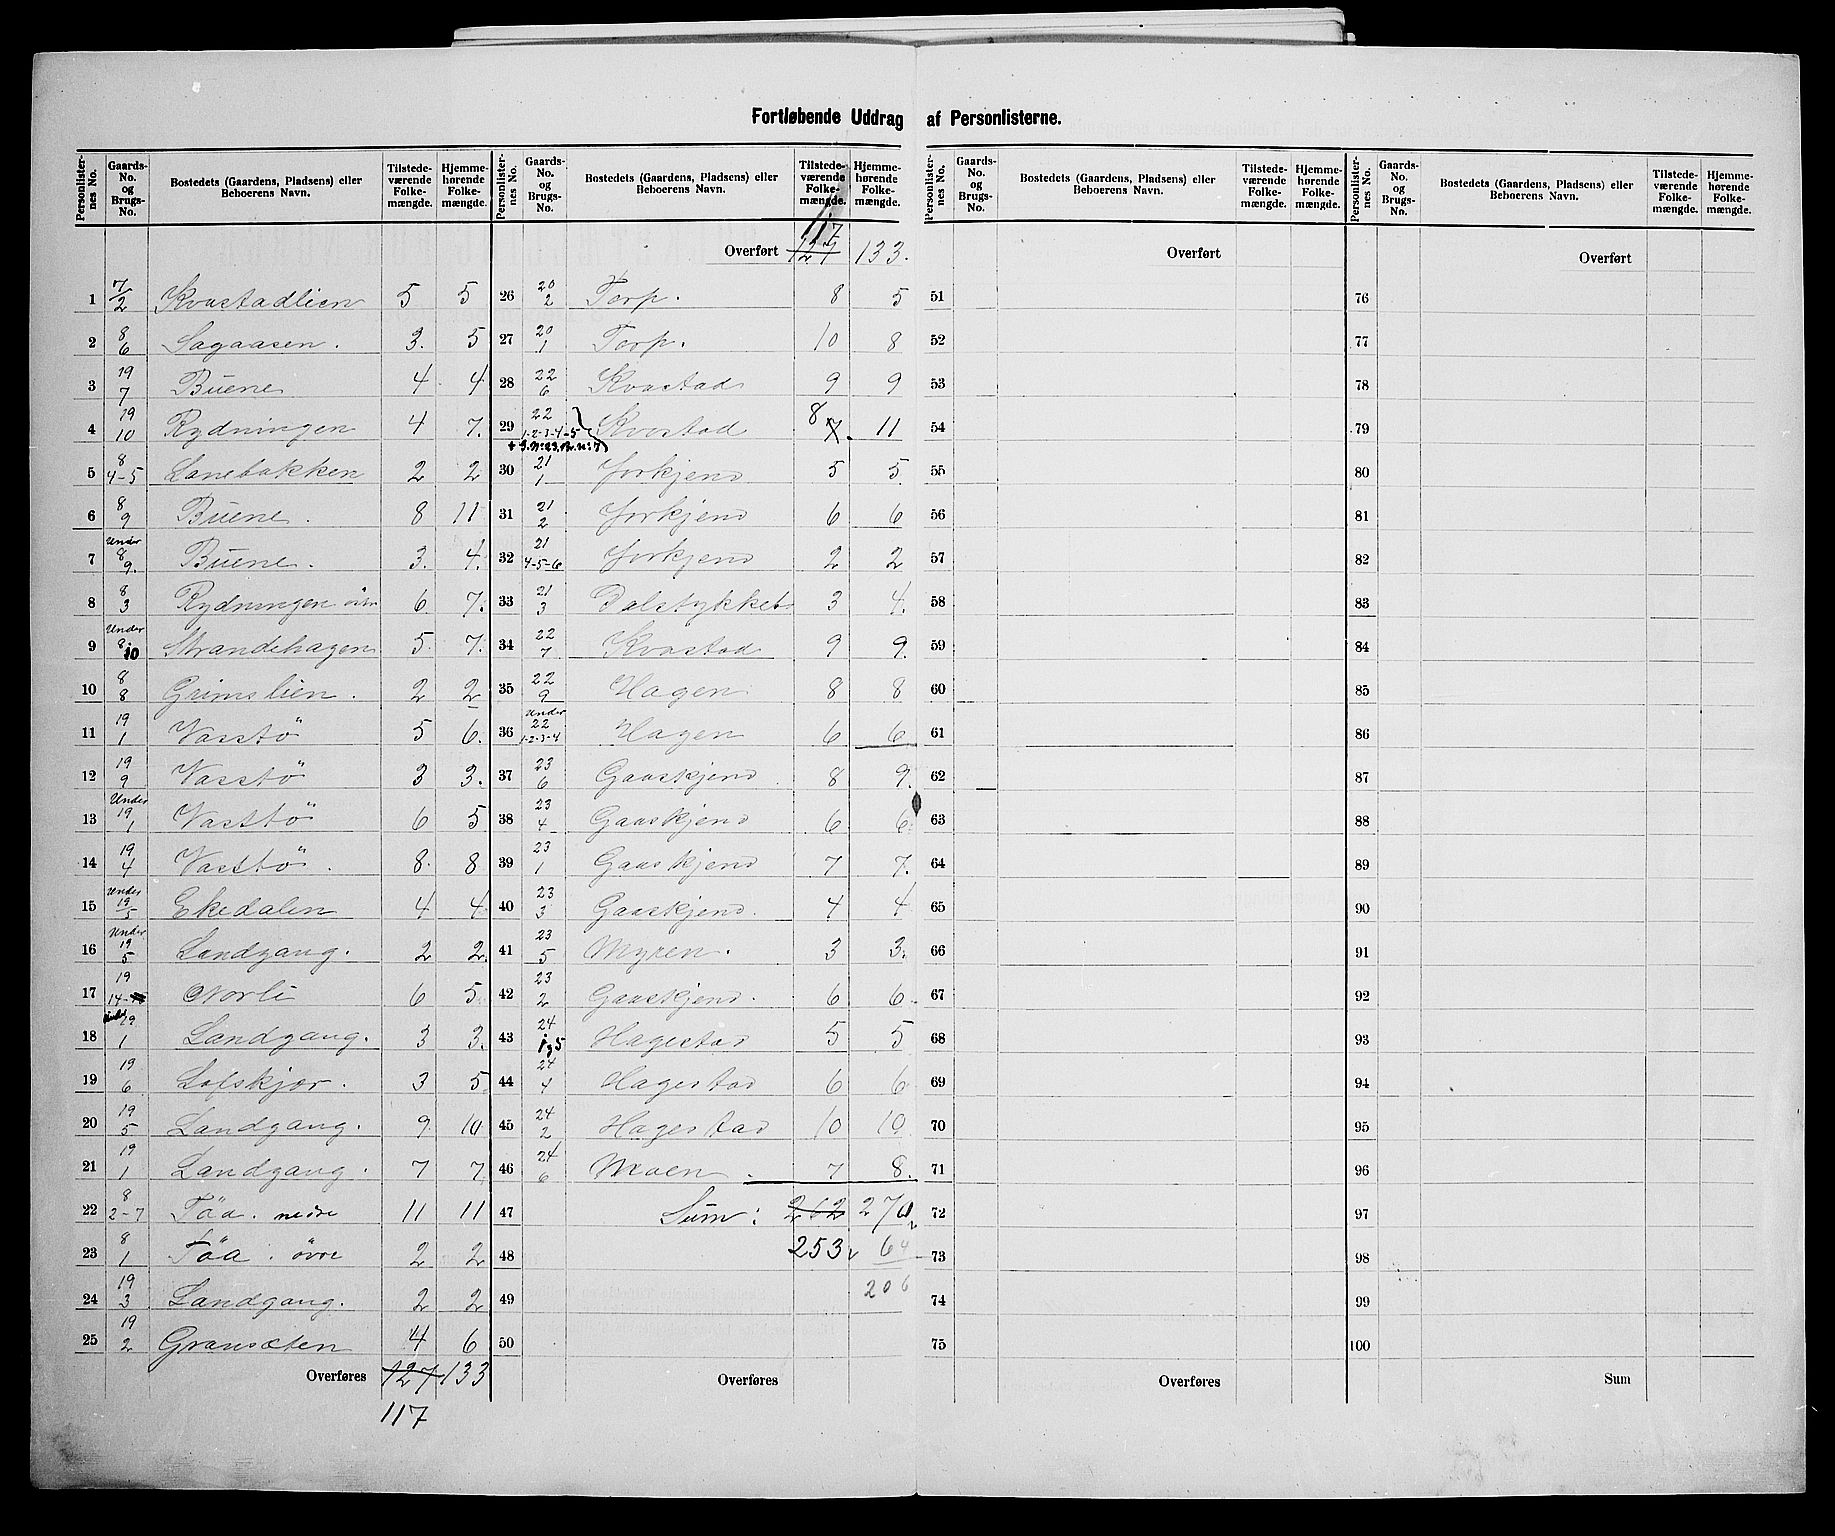 Fortløbende Uddrag af Personlisterne.
Personlister-nes No. | Gaards-No. og Brugs-No. | Bostedets (Gaardens, Pladsens) eller Beboerens Navn. | Tilstede-værende Folke-mængde. | Hjemme-hørende Folke-mængde.
1 | 7/2 | Kvastadlien | 5 | 5
2 | 8/6 | Sagaasen. | 3. | 5
3 | 19/7 | Buene | 4 | 4
4 | 19/10 | Rydningen | 4 | 7.
5 | 8/4-5 | Lanebakken | 2 | 2
6 | 8/9 | Buene. | 8 | 11
7 | Under 8/9. | Buene. | 3. | 4.
8 | 8/3 | Rydningen | 6 | 7.
9 | Under 8/10 | Strandehagen | 5 | 7.
10 | 8/8 | Grimslien. | 2 | 2
11 | 19/1 | Vasstö | 5 | 6.
12 | 19/9 | Vasstö | 3 | 3.
13 | Under 19/1 | Vasstö | 6 | 5
14 | 19/4 | Vasstö. | 8. | 8
15 | Under 19/5 | Ekedalen | 4 | 4
16 | Under 19/5 | Landgang. | 2 | 2.
17 | 19/14 | Norli | 6 | 5
18 | Under 19/1 | Landgang. | 3 | 3.
19 | 19/6 | Lofskjær. | 3 | 5
20 | 19/5 | Landgang. | 9 | 10
21 | 19/1 | Landgang. | 7 | 7
22 | 8/2-7 | Töa. nedre | 11 | 11
23 | 8/1 | Töa. övre | 2 | 2
24 | 19/3 | Landgang. | 2 | 2
25 | 19/2 | Gransæten | 4 | 6
Overføres | 127 | 133
117
Personlister-nes No. | Gaards-No. og Brugs-No. | Bostedets (Gaardens, Pladsens) eller Beboerens Navn. | Tilstede-værende Folke-mængde. | Hjemme-hørende Folke-mængde.
117
Overført | 127 | 133.
26 | 20/2 | Torp. | 8 | 5
27 | 20/1 | Torp. | 10 | 8
28 | 22/6 | Kvastad | 9 | 9
29 | 22/1-2-3-4-5 | Kvastad | 8 7. | 11
30 | 21/1 | Jorkjend | 5 | 5.
31 | 21/2 | Jorkjend | 6 | 6
32 | 21/4-5-6 | Jorkjend | 2 | 2
33 | 21/3 | Dalstykket | 3 | 4.
34 | 22/7 | Kvastad | 9 | 9.
35 | 22/9 | Hagen | 8 | 8
36 | Under 22/1-2-3-4 | Hagen | 6 | 6
37 | 23/6 | Gaaskjend | 8 | 9.
38 | 23/4 | Gaaskjend | 6 | 6
39 | 23/1 | Gaaskjend | 7 | 7.
40 | 23/3 | Gaaskjend. | 4 | 4
41 | 23/5 | Myren. | 3 | 3.
42 | 23/2 | Gaaskjend. | 6 | 6
43 | 24/1 g 5 | Hagestad | 5 | 5
44 | 24/4 | Hagestad | 6 | 6
45 | 24/2 | Hagestad | 10 | 10
46 | 24/6 | Moen. | 7 | 8.
47 | Sum: | 262 | 270
48 | 253 | 64
49 | 206
50
Overføres
Personlister-nes No. | Gaards-No. og Brugs-No. | Bostedets (Gaardens, Pladsens) eller Beboerens Navn. | Tilstede-værende Folke-mængde. | Hjemme-hørende Folke-mængde.
Overført
51
52
53
54
55
56
57
58
59
60
61
62
63
64
65
66
67
68
69
70
71
72
73
74
75
Overføres
Personlister-nes No. | Gaards-No. og Brugs-No. | Bostedets (Gaardens, Pladsens) eller Beboerens Navn. | Tilstede-værende Folke-mængde. | Hjemme-hørende Folke-mængde.
Overført
76
77
78
79
80
81
82
83
84
85
86
87
88
89
90
91
92
93
94
95
96
97
98
99
100
Sum